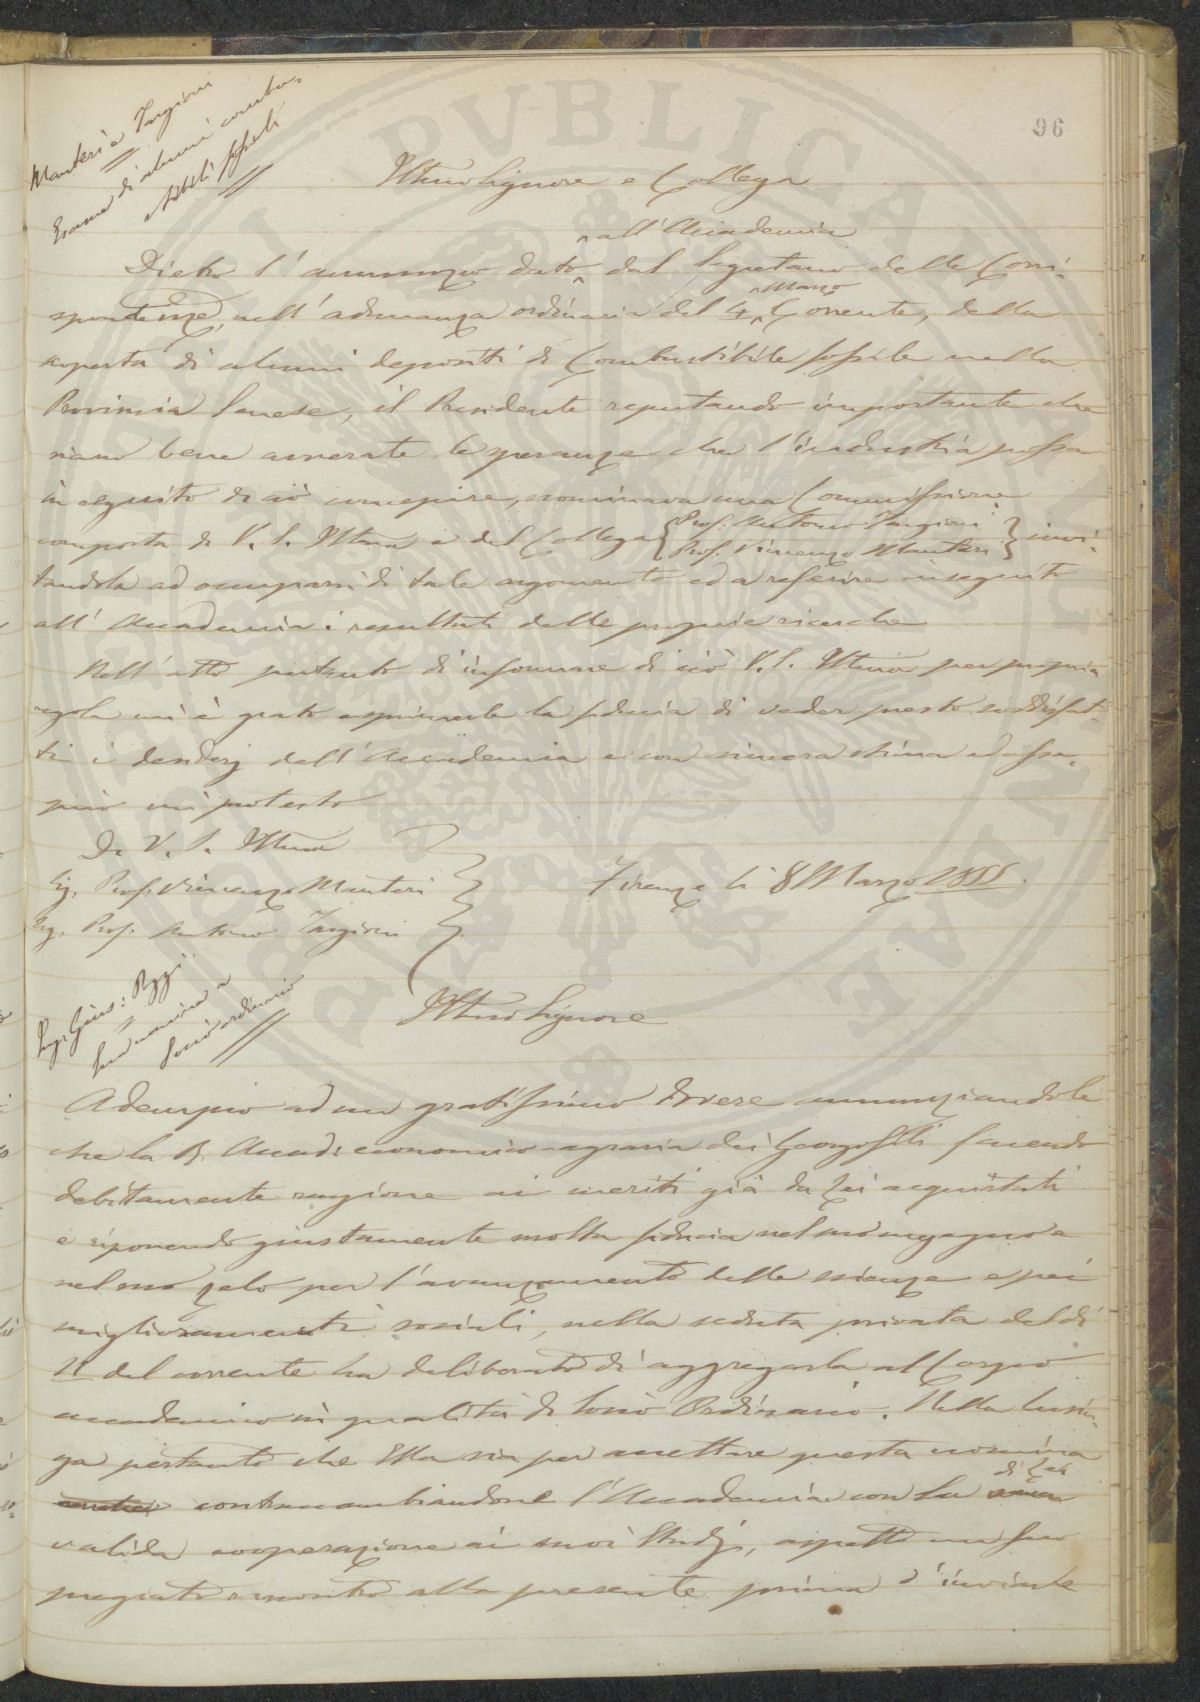 96
Manteri e Targioni
Esame di alcuni combu-
stibili fossili
Illmo Signore e Collega
all'Accademia
Dietro l'annunzio dato dal Segretario delle Corri-
Marzo
spondenze, nell'adunanza ordinaria del 4 Corrente, della
scoperta di alcuni depositi di Combustibile fossile nella
Provincia Senese, il Presidente reputando importante che
siano bene avverate le speranze che l'industria possa
in seguito di ciò concepire, nominava una Commissione
composta di V. S. Illma e del Collega { Prof. Antonio Targioni
Prof. Vincenzo Manteri } invi-
tandola ad occuparsi di tale argomento ed a referire in seguito
all'Accademia i resultati delle proprie ricerche
Nell'atto pertanto di informare di ciò V. S. Illma per propria
regola mi è grato esprimerle la fiducia di veder presto soddisfat-
ti i desiderj dell'Accademia e con sincera stima ed osse-
quio mi protesto
Di V. S. Illma
Sig. Prof. Vincenzo Manteri
Sig. Prof. Antonio Targioni
Firenze li 8 Marzo 1855.
Sig. Gius: Pozzi
Sua nomina a
Socio ordinario
Illmo Signore
Adempio ad un gratissimo dovere annunziandole
che la R. Accad: economico-agraria dei Georgofili facendo
debitamente ragione ai meriti già da Lei acquistati
e riponendo giustamente molta fiducia nel suo ingegno e
nel suo zelo per l'avanzamento delle scienze e pei
miglioramenti sociali, nella seduta privata del dì
11 del corrente ha deliberato di aggregarla al Corpo
accademico in qualità di Socio Ordinario. Nella lusin-
ga pertanto che Ella sia per accettare questa nomina
di Lei
contraccambiandone l'Accademia con la
valida cooperazione ai suoi Studj, aspetto un suo
pregiato riscontro alla presente prima d'inviarle